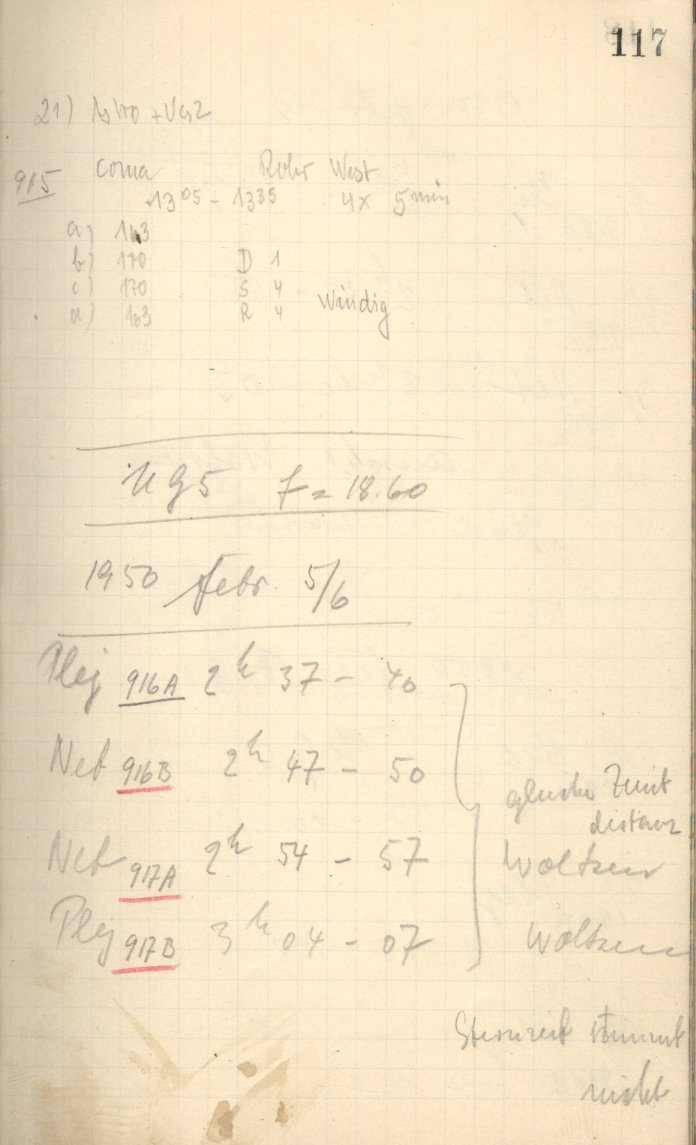 117
21) Astro + Verz
915 Coma Rohr West
13 05 - 13 35 4x 5 min
a) 163
b) 170 D 1
c) 170 S 4
d) 163 R 4 Windig
UG5 f = 18.60
1950 Febr. 5/6
Plej 916A 2h 37 - 40
Neb 916B 2h 47 - 50
gleiche Zenit
distanz
Neb 917A 2h 54 - 57 Wolken
Plej 917B 3h 04 - 07 Wolken
Sternzeit stimmt
nicht